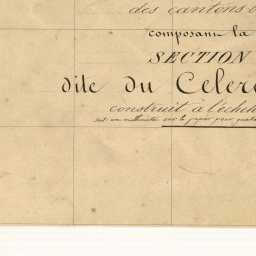 des cantons
composant la
SECTION
dite du Celer
construit à l'éche